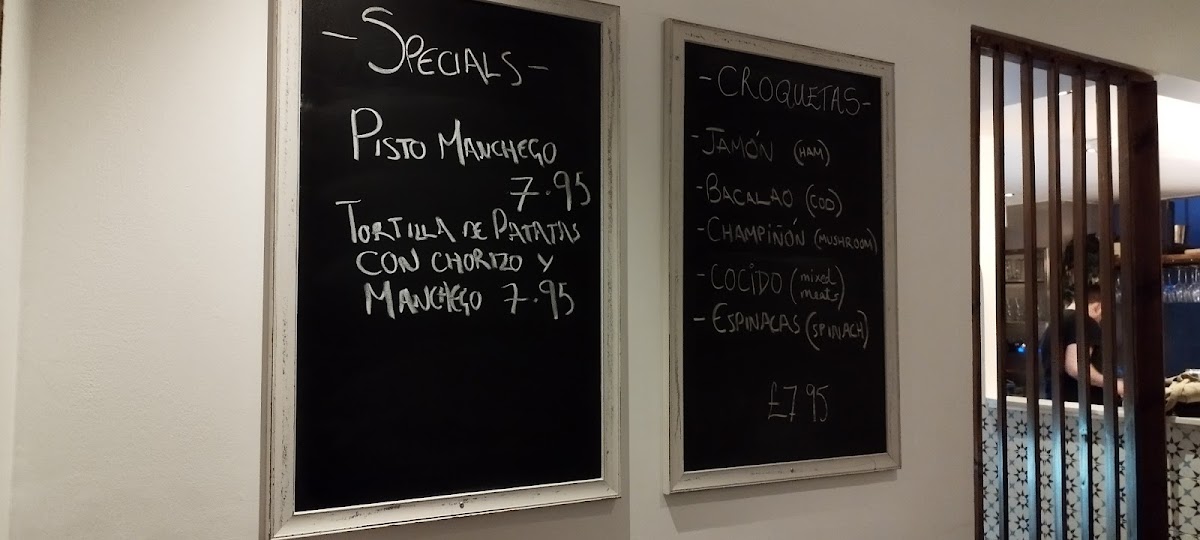 - SPECIALS -
PISTO MANCHEGO
7.95
TORTILLA DE PATATAS
CON CHORIZO Y
MANCHEGO 7.95
- CROQUETAS -
- JAMÓN (HAM)
- BACALAO (COD)
- CHAMPIÑÓN (MUSHROOM)
- COCIDO (mixed
meats)
- ESPINACAS (SPINACH)
£7.95